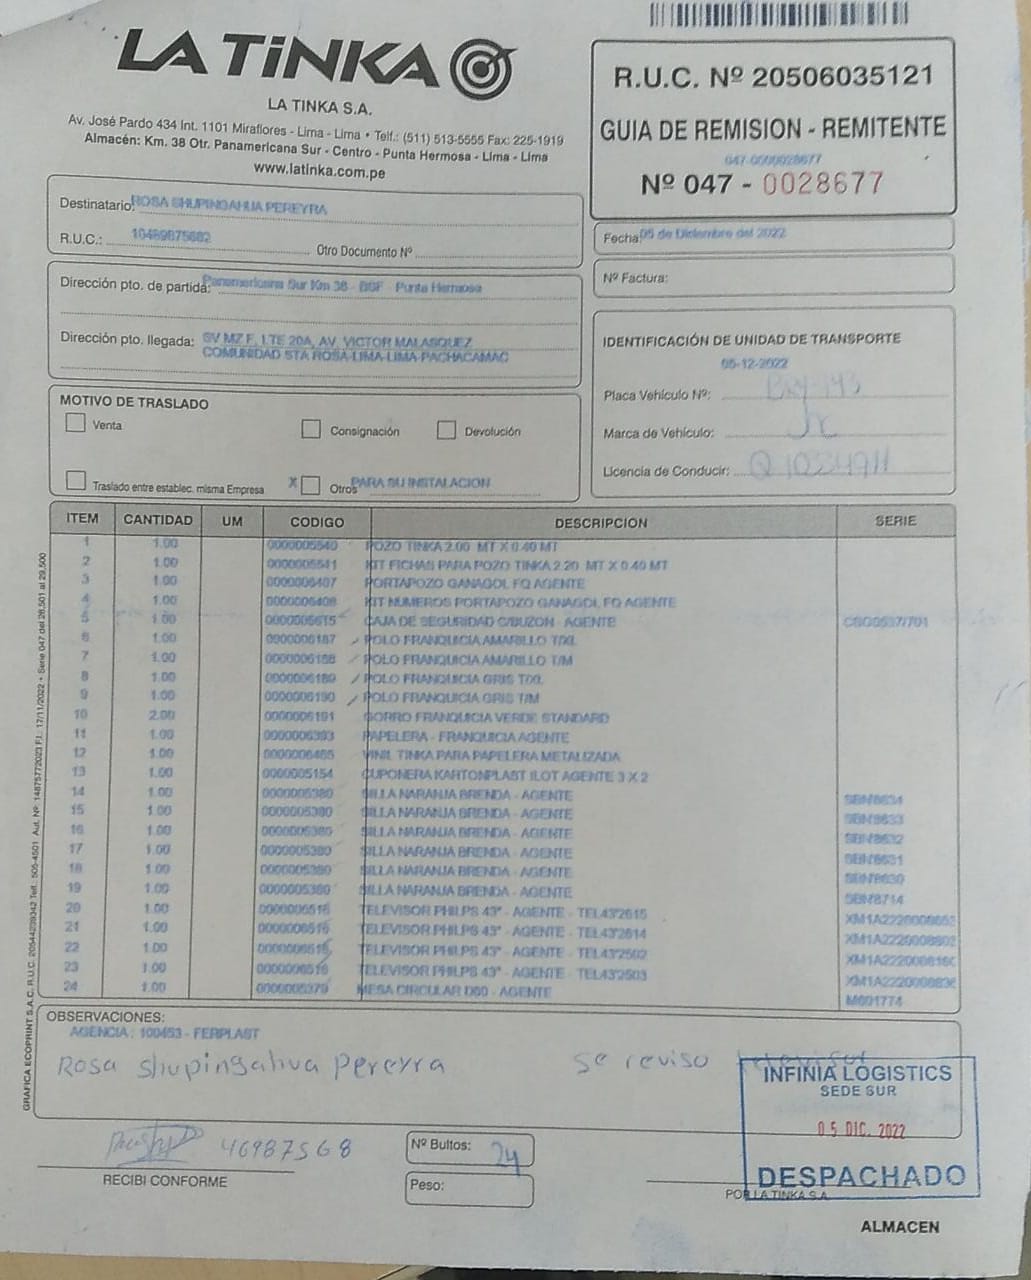 LA TiNKA
LA TINKA S.A.
Av. José Pardo 434 Int. 1101 Miraflores - Lima - Lima • Telf.: (511) 513-5555 Fax: 225-1919
Almacén: Km. 38 Otr. Panamericana Sur - Centro - Punta Hermosa - Lima - Lima
www.latinka.com.pe
R.U.C. Nº 20506035121
GUIA DE REMISION - REMITENTE
047-0000028677
Nº 047 - 0028677
Destinatario: ROSA SHUPINGAHUA PEREYRA
R.U.C.: Otro Documento Nº
Fecha: 05 de Diciembre del 2022
Nº Factura:
Dirección pto. de partida: Panamericana Sur Km 38 - BSF - Punta Hermosa
Dirección pto. llegada: SV MZ F, LTE 20A, AV. VICTOR MALASQUEZ
COMUNIDAD STA ROSA-LIMA-LIMA-PACHACAMAC
IDENTIFICACIÓN DE UNIDAD DE TRANSPORTE
05-12-2022
Placa Vehículo Nº:
Marca de Vehículo:
Licencia de Conducir:
MOTIVO DE TRASLADO
Venta Consignación Devolución
Traslado entre establec. misma Empresa X Otros PARA SU INSTALACION
ITEM CANTIDAD UM CODIGO DESCRIPCION SERIE
1 1.00 0000005540 POZO TINKA 2.00 MT X 0.40 MT
2 1.00 0000005541 KIT FICHAS PARA POZO TINKA 2.20 MT X 0.40 MT
3 1.00 0000006407 PORTAPOZO GANAGOL FQ AGENTE
4 1.00 0000006408 KIT NUMEROS PORTAPOZO GANAGOL FQ AGENTE
5 1.00 0000005615 CAJA DE SEGURIDAD C/BUZON - AGENTE
6 1.00 0000006187 POLO FRANQUICIA AMARILLO T/XL
7 1.00 0000006188 POLO FRANQUICIA AMARILLO T/M
8 1.00 0000006189 POLO FRANQUICIA GRIS T/XL
9 1.00 0000006190 POLO FRANQUICIA GRIS T/M
10 2.00 0000006191 GORRO FRANQUICIA VERDE STANDARD
11 1.00 0000006393 PAPELERA - FRANQUICIA AGENTE
12 1.00 0000006465 VINIL TINKA PARA PAPELERA METALIZADA
13 1.00 0000005154 CUPONERA KARTONPLAST ILOT AGENTE 3 X 2
14 1.00 0000005380 SILLA NARANJA BRENDA - AGENTE SBN8634
15 1.00 0000005380 SILLA NARANJA BRENDA - AGENTE SBN8633
16 1.00 0000005380 SILLA NARANJA BRENDA - AGENTE SBN8632
17 1.00 0000005380 SILLA NARANJA BRENDA - AGENTE SBN8631
18 1.00 0000005380 SILLA NARANJA BRENDA - AGENTE SBN8630
19 1.00 0000005380 SILLA NARANJA BRENDA - AGENTE SBN8714
20 1.00 0000006516 TELEVISOR PHILPS 43" - AGENTE - TEL432615
21 1.00 0000006516 TELEVISOR PHILPS 43" - AGENTE - TEL432614
22 1.00 0000006516 TELEVISOR PHILPS 43" - AGENTE - TEL432502
23 1.00 0000006516 TELEVISOR PHILPS 43" - AGENTE - TEL432503
24 1.00 0000005379 MESA CIRCULAR D60 - AGENTE M601774
OBSERVACIONES:
AGENCIA : 100453 - FERPLAST
Rosa Shupingahua Pereyra se reviso televisor
INFINIA LOGISTICS
SEDE SUR
05 DIC. 2022
DESPACHADO
46987568
RECIBI CONFORME
Nº Bultos: 24
Peso:
POR LA TINKA S.A.
ALMACEN